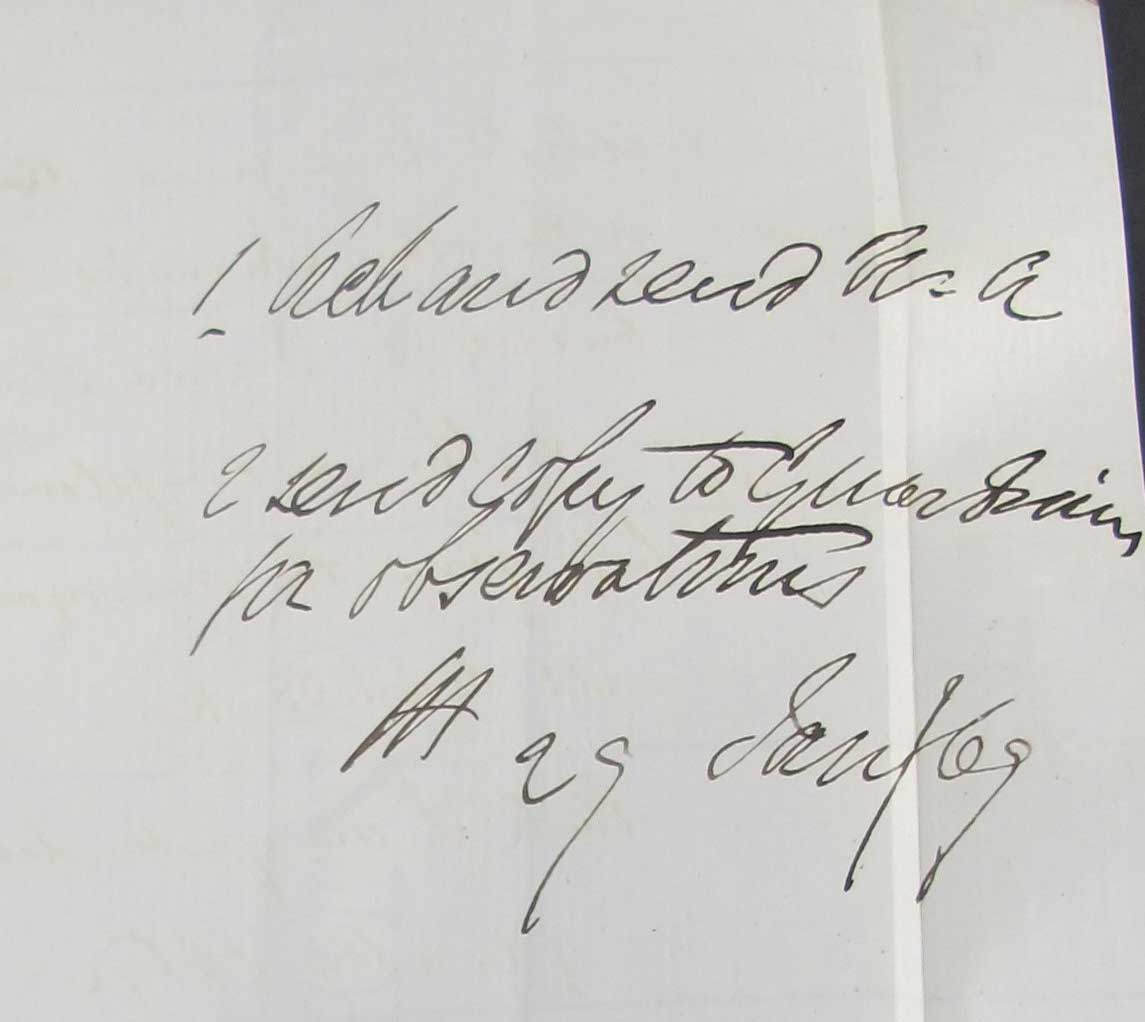 1. Ack and send No. A
2 send Copy to Guardians
for observations
H 29 Jany / 69